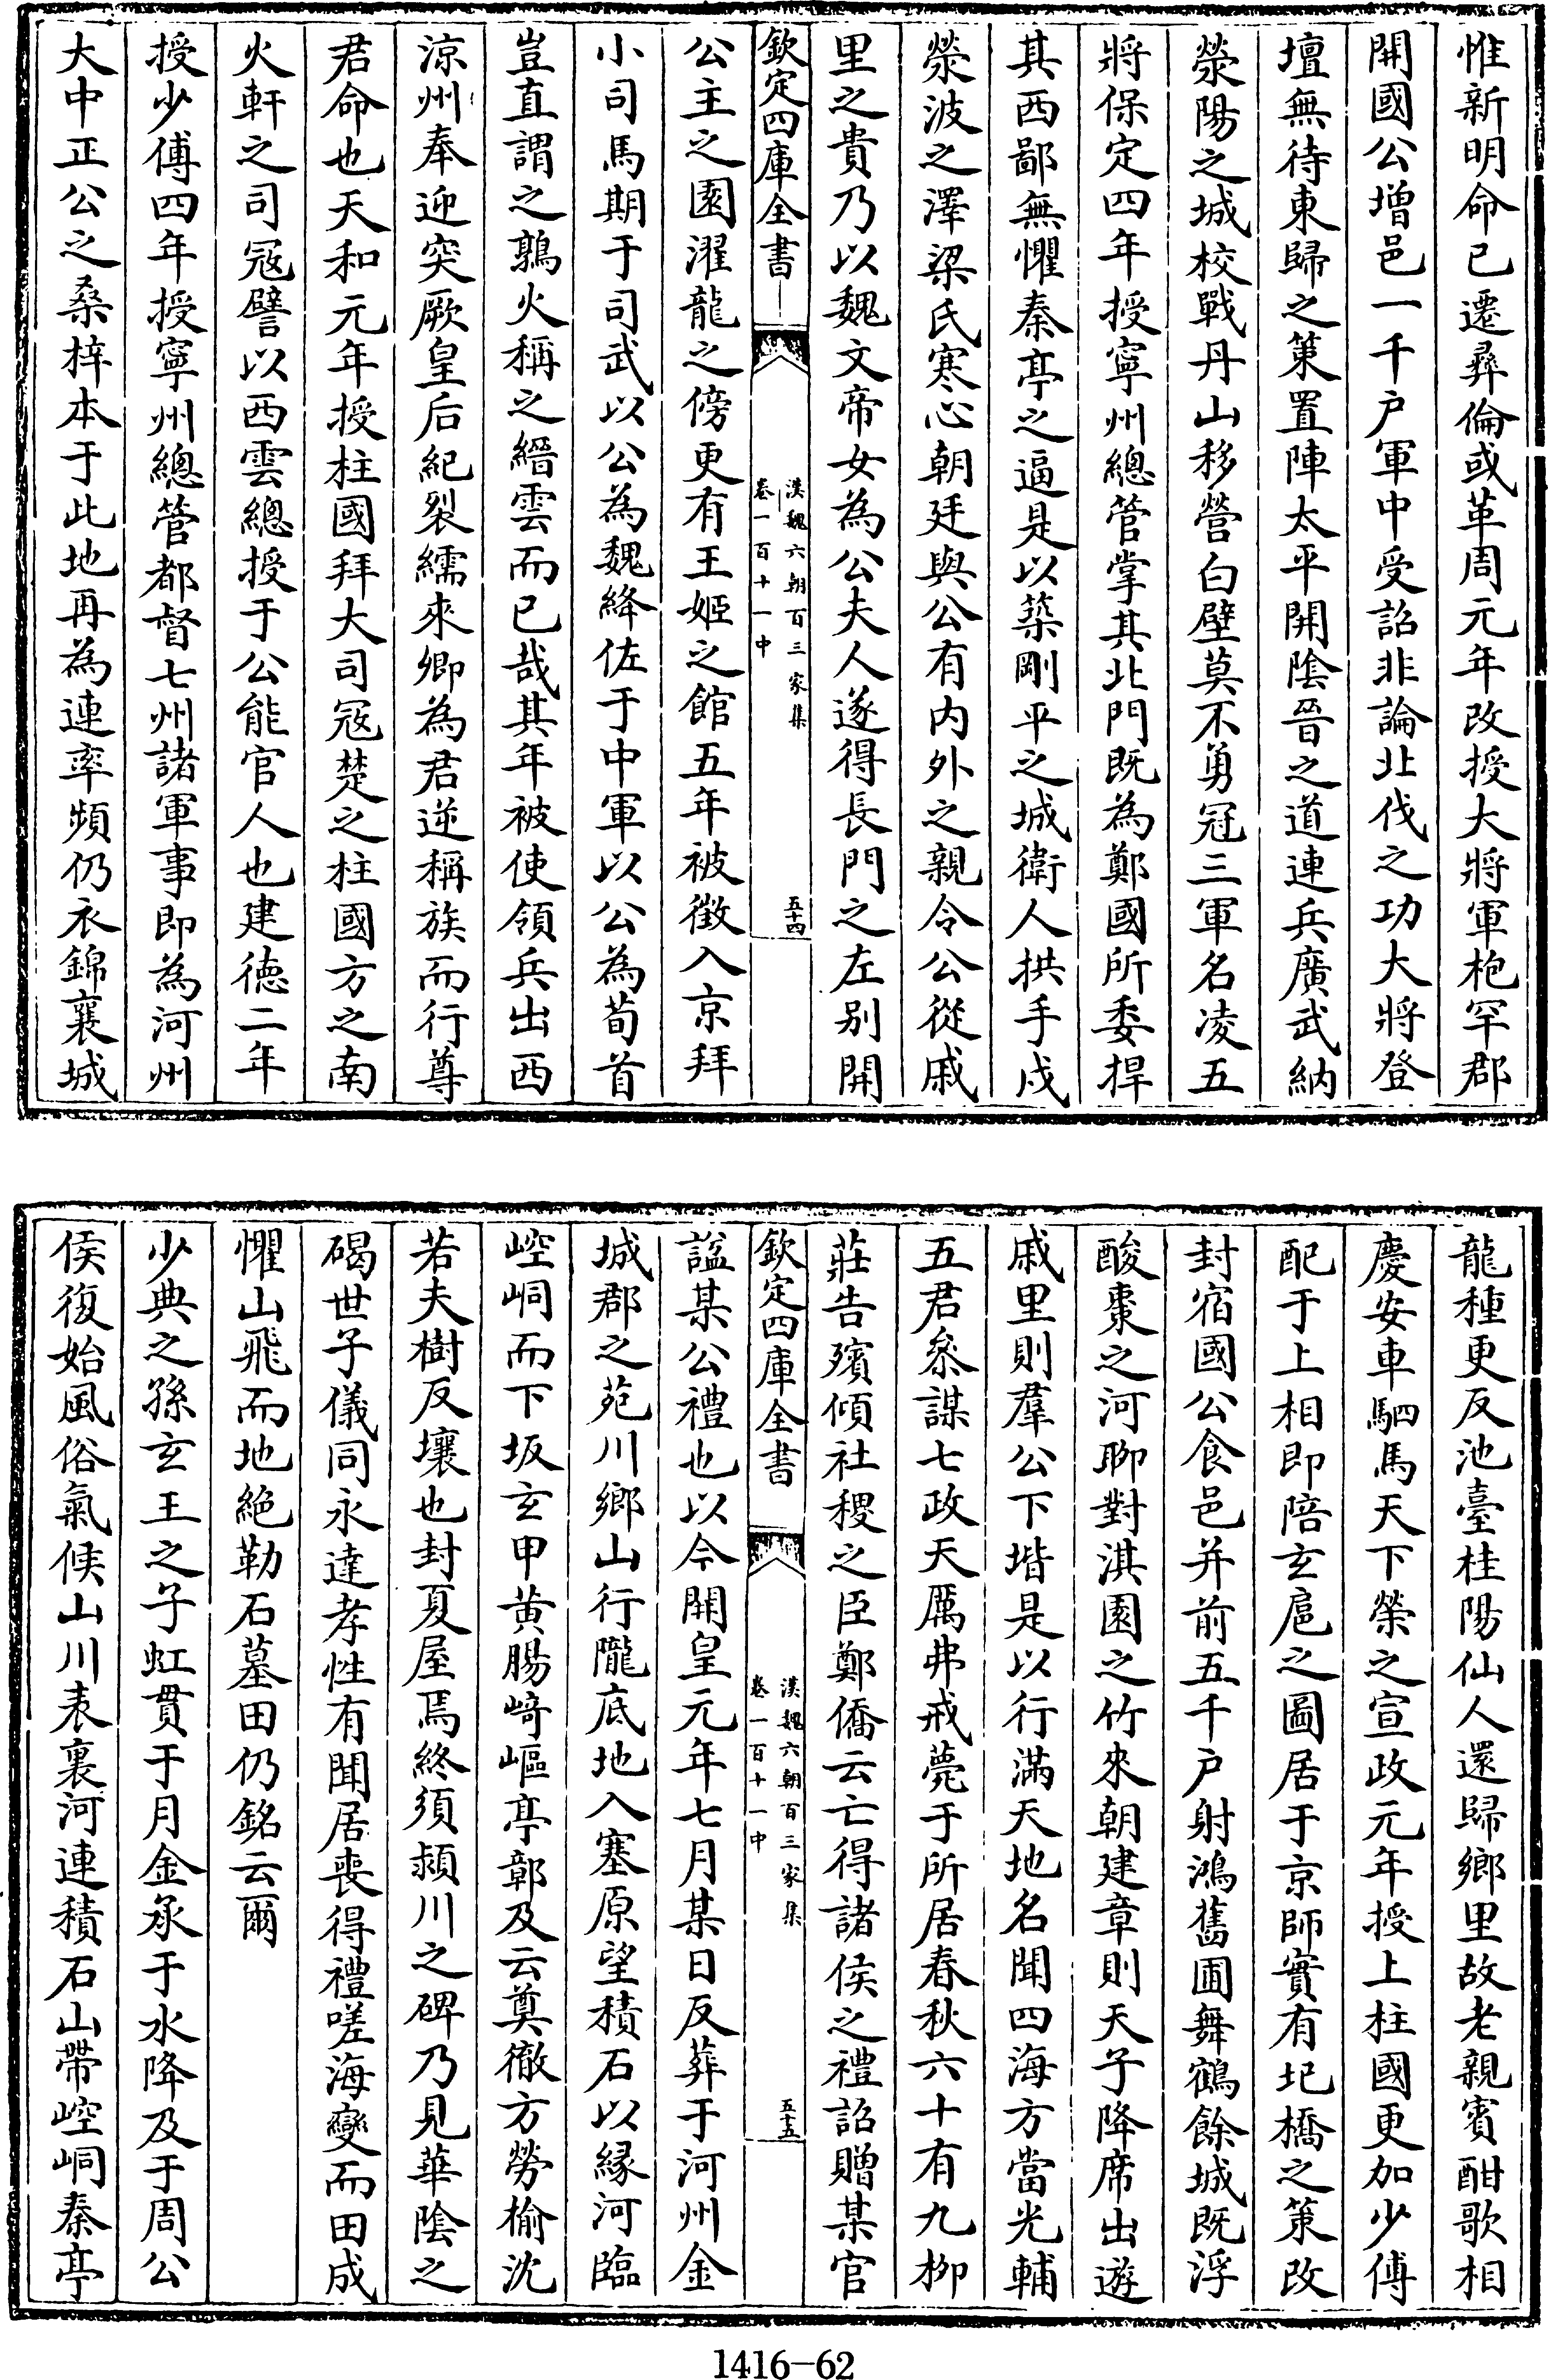 惟新明命已遷彛倫或革周元年改授大將軍枹罕郡
開國公增邑一千户軍中受詔非論北伐之功大將登
壇無待東歸之策置陣太平開陰晉之道連兵廣武納
滎陽之城校戰丹山移營白壁莫不勇冠三軍名凌五
將保定四年授寧州總管掌其北門既為鄭國所委捍
其西鄙無懼秦亭之逼是以築剛平之城衛人拱手戍
滎波之澤梁氏寒心朝廷與公有内外之親令公從戚
里之貴乃以魏文帝女為公夫人遂得長門之左别開
欽定四庫全書
漢魏六朝百三家集
卷一百十一中
五十四
公主之園濯龍之傍更有王姬之館五年被徵入京拜
小司馬期于司武以公為魏絳佐于中軍以公為荀首
豈直謂之鶉火稱之縉雲而已哉其年被使領兵出西
涼州奉迎突厥皇后紀裂繻來卿為君逆稱族而行尊
君命也天和元年授柱國拜大司冦楚之柱國方之南
火軒之司冦譬以西雲總授于公能官人也建德二年
授少傅四年授寧州總管都督七州諸軍事即為河州
大中正公之桑梓本于此地再為連率頻仍衣錦襄城
龍種更反池臺桂陽仙人還歸鄉里故老親賓酣歌相
慶安車駟馬天下榮之宣政元年授上柱國更加少傅
配于上相即陪玄扈之圖居于京師實有圯橋之策改
封宿國公食邑并前五千户射鴻舊圃舞鶴餘城既浮
酸棗之河聊對淇園之竹來朝建章則天子降席出遊
戚里則羣公下堦是以行滿天地名聞四海方當光輔
五君叅謀七政天厲弗戒薨于所居春秋六十有九柳
莊告殯傾社稷之臣鄭僑云亡得諸侯之禮詔贈某官
欽定四庫全書
漢魏六朝百三家集
卷一百十一中
五十五
諡某公禮也以今開皇元年七月某日反葬于河州金
城郡之苑川鄉山行隴底地入塞原望積石以縁河臨
崆峒而下坂玄甲黄腸﨑嶇亭鄣及云奠徹方勞榆沈
若夫樹反壤也封夏屋焉終須潁川之碑乃見華陰之
碣世子儀同永達孝性有聞居喪得禮嗟海變而田成
懼山飛而地絶勒石墓田仍銘云爾
少典之孫玄王之子虹貫于月金承于水降及于周公
侯復始風俗氣候山川表裏河連積石山帶崆峒秦亭
1416-62